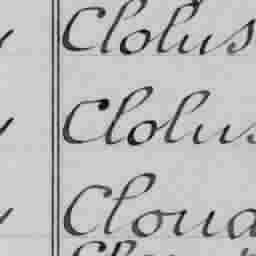 Clolus
Clolus
Cloud